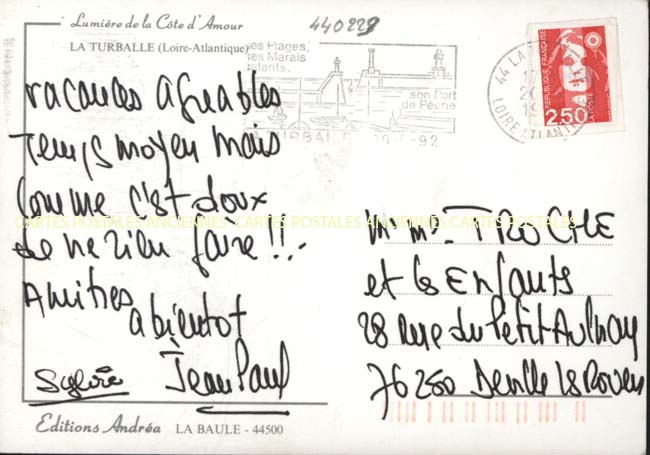 Lumière de la Côte d'Amour
440229
LA TURBALLE (Loire-Atlantique)
ses Plages,
ses Marais
son Port
de Pêche
44 LA
LOIRE ATLANTI
RÉPUBLIQUE FRANÇAISE
2,50
LA POSTE
vacances agréables
Temps moyen mais
Comme c'est doux
de ne rien faire !!.
Amitiés
a bientot
Sylvie Jean Paul
CARTES POSTALES ANCIENNES CARTES POSTALES ANCIENNES CARTES POSTALES
M. Me. TROCHE
et les Enfants
28 rue du Petit Aulnay
76250 Deville les Rouen
Editions Andréa LA BAULE - 44500